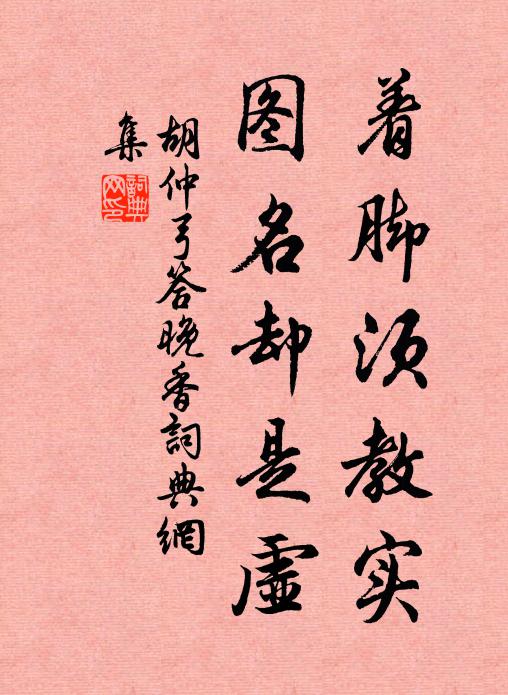 着脚须教实
图名却是虚
胡仲弓答晚香詞典網
集
詞典
网印